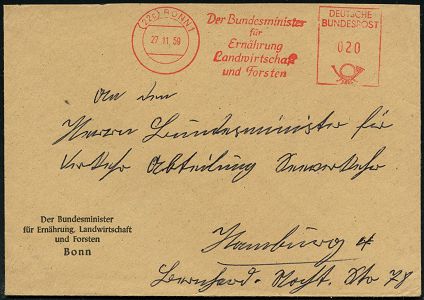 (22c) BONN 1
27.11.59
Der Bundesminister
für
Ernährung
Landwirtschaft
und Forsten
DEUTSCHE
BUNDESPOST
020
An den
Herrn Bundesminister für
Verkehr Abteilung Seeverkehr
Hamburg 4
Bernhard-Nocht-Str 78
Der Bundesminister
für Ernährung, Landwirtschaft
und Forsten
Bonn